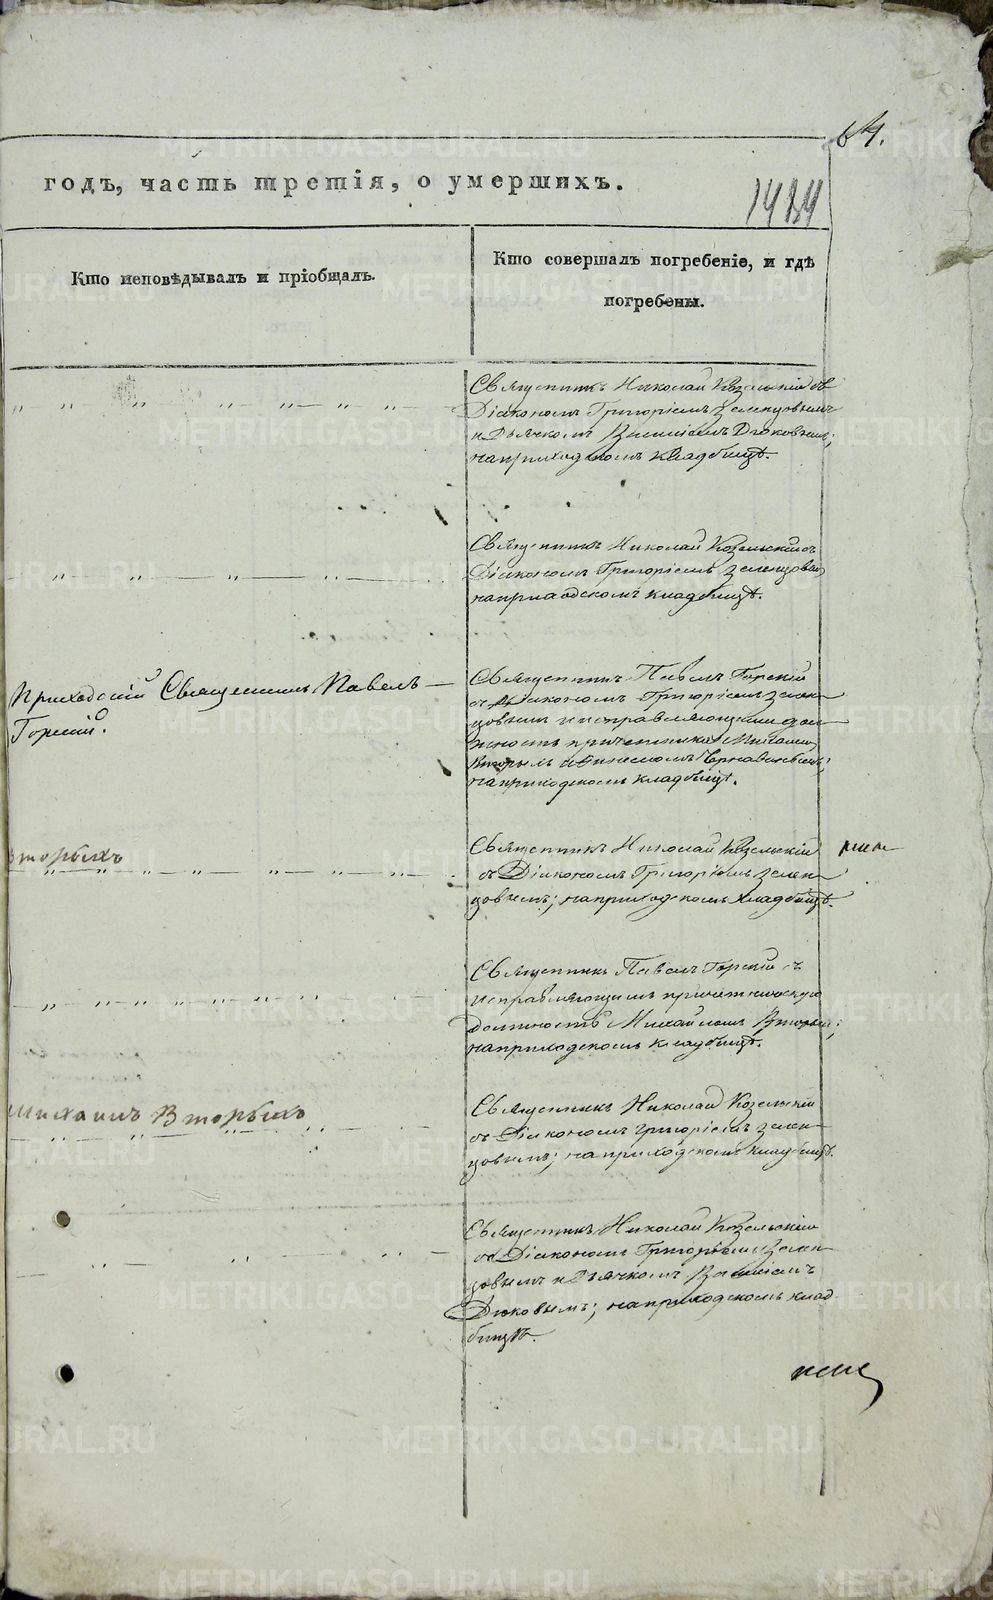 64.
годъ, часть третія, о умершихъ.
1484
Кто исповѣдывалъ и пріобщалъ.
Кто совершалъ погребеніе, и гдѣ
погребены.
Священникъ Николай Козельскій съ
Діакономъ Григоріемъ Зеленцовымъ
и Дьячкомъ Василіемъ Дюковымъ;
на приходскомъ кладбищѣ.
Священникъ Николай Козельскій съ
Діакономъ Григоріемъ Зеленцовым
на приходскомъ кладбищѣ.
Приходскій Священникъ Павелъ
Горскій.
Священникъ Павелъ Горскій
съ Діакономъ Григоріемъ Зелен-
цовымъ и исправляющими дол-
жность причетника Михаиломъ
Вторымъ и
на приходскомъ кладбищѣ.
Вторыхъ
Священникъ Николай Козельскій
съ Діакономъ Григоріемъ Зелен-
цовымъ; на приходскомъ кладбищѣ.
Священникъ Павелъ Горскій съ
исправляющимъ причетническую
должность Михайломъ Вторых;
на приходскомъ кладбищѣ.
Михаилъ Вторыхъ
Священникъ Николай Козельскій
съ Діакономъ Григоріемъ Зелен-
цовымъ; на приходскомъ кладбищѣ.
Священникъ Николай Козельскій
съ Діакономъ Григоріемъ Зелен-
цовымъ и Дьячкомъ Василіемъ
Дюковымъ; на приходскомъ клад-
бищѣ.
METRIKI.GASO-URAL.RU